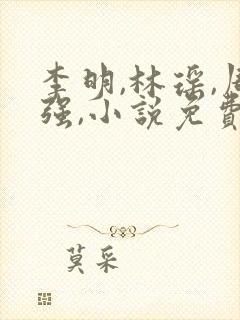 李明,林瑶,
强,小説免費
莫采